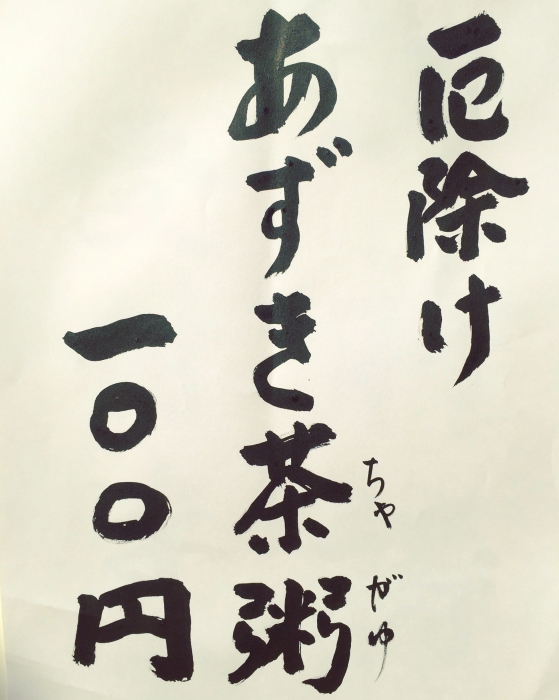 厄除け
あずき茶粥
ちゃがゆ
一〇〇円